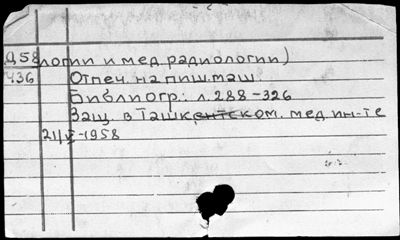 - 2 -
Д58 логии и мед. радиологии)
436 Отпеч. на пиш. маш.
Библиогр.: л. 288-326
Защ. в Ташкентском. мед. ин-те
21/V-1958